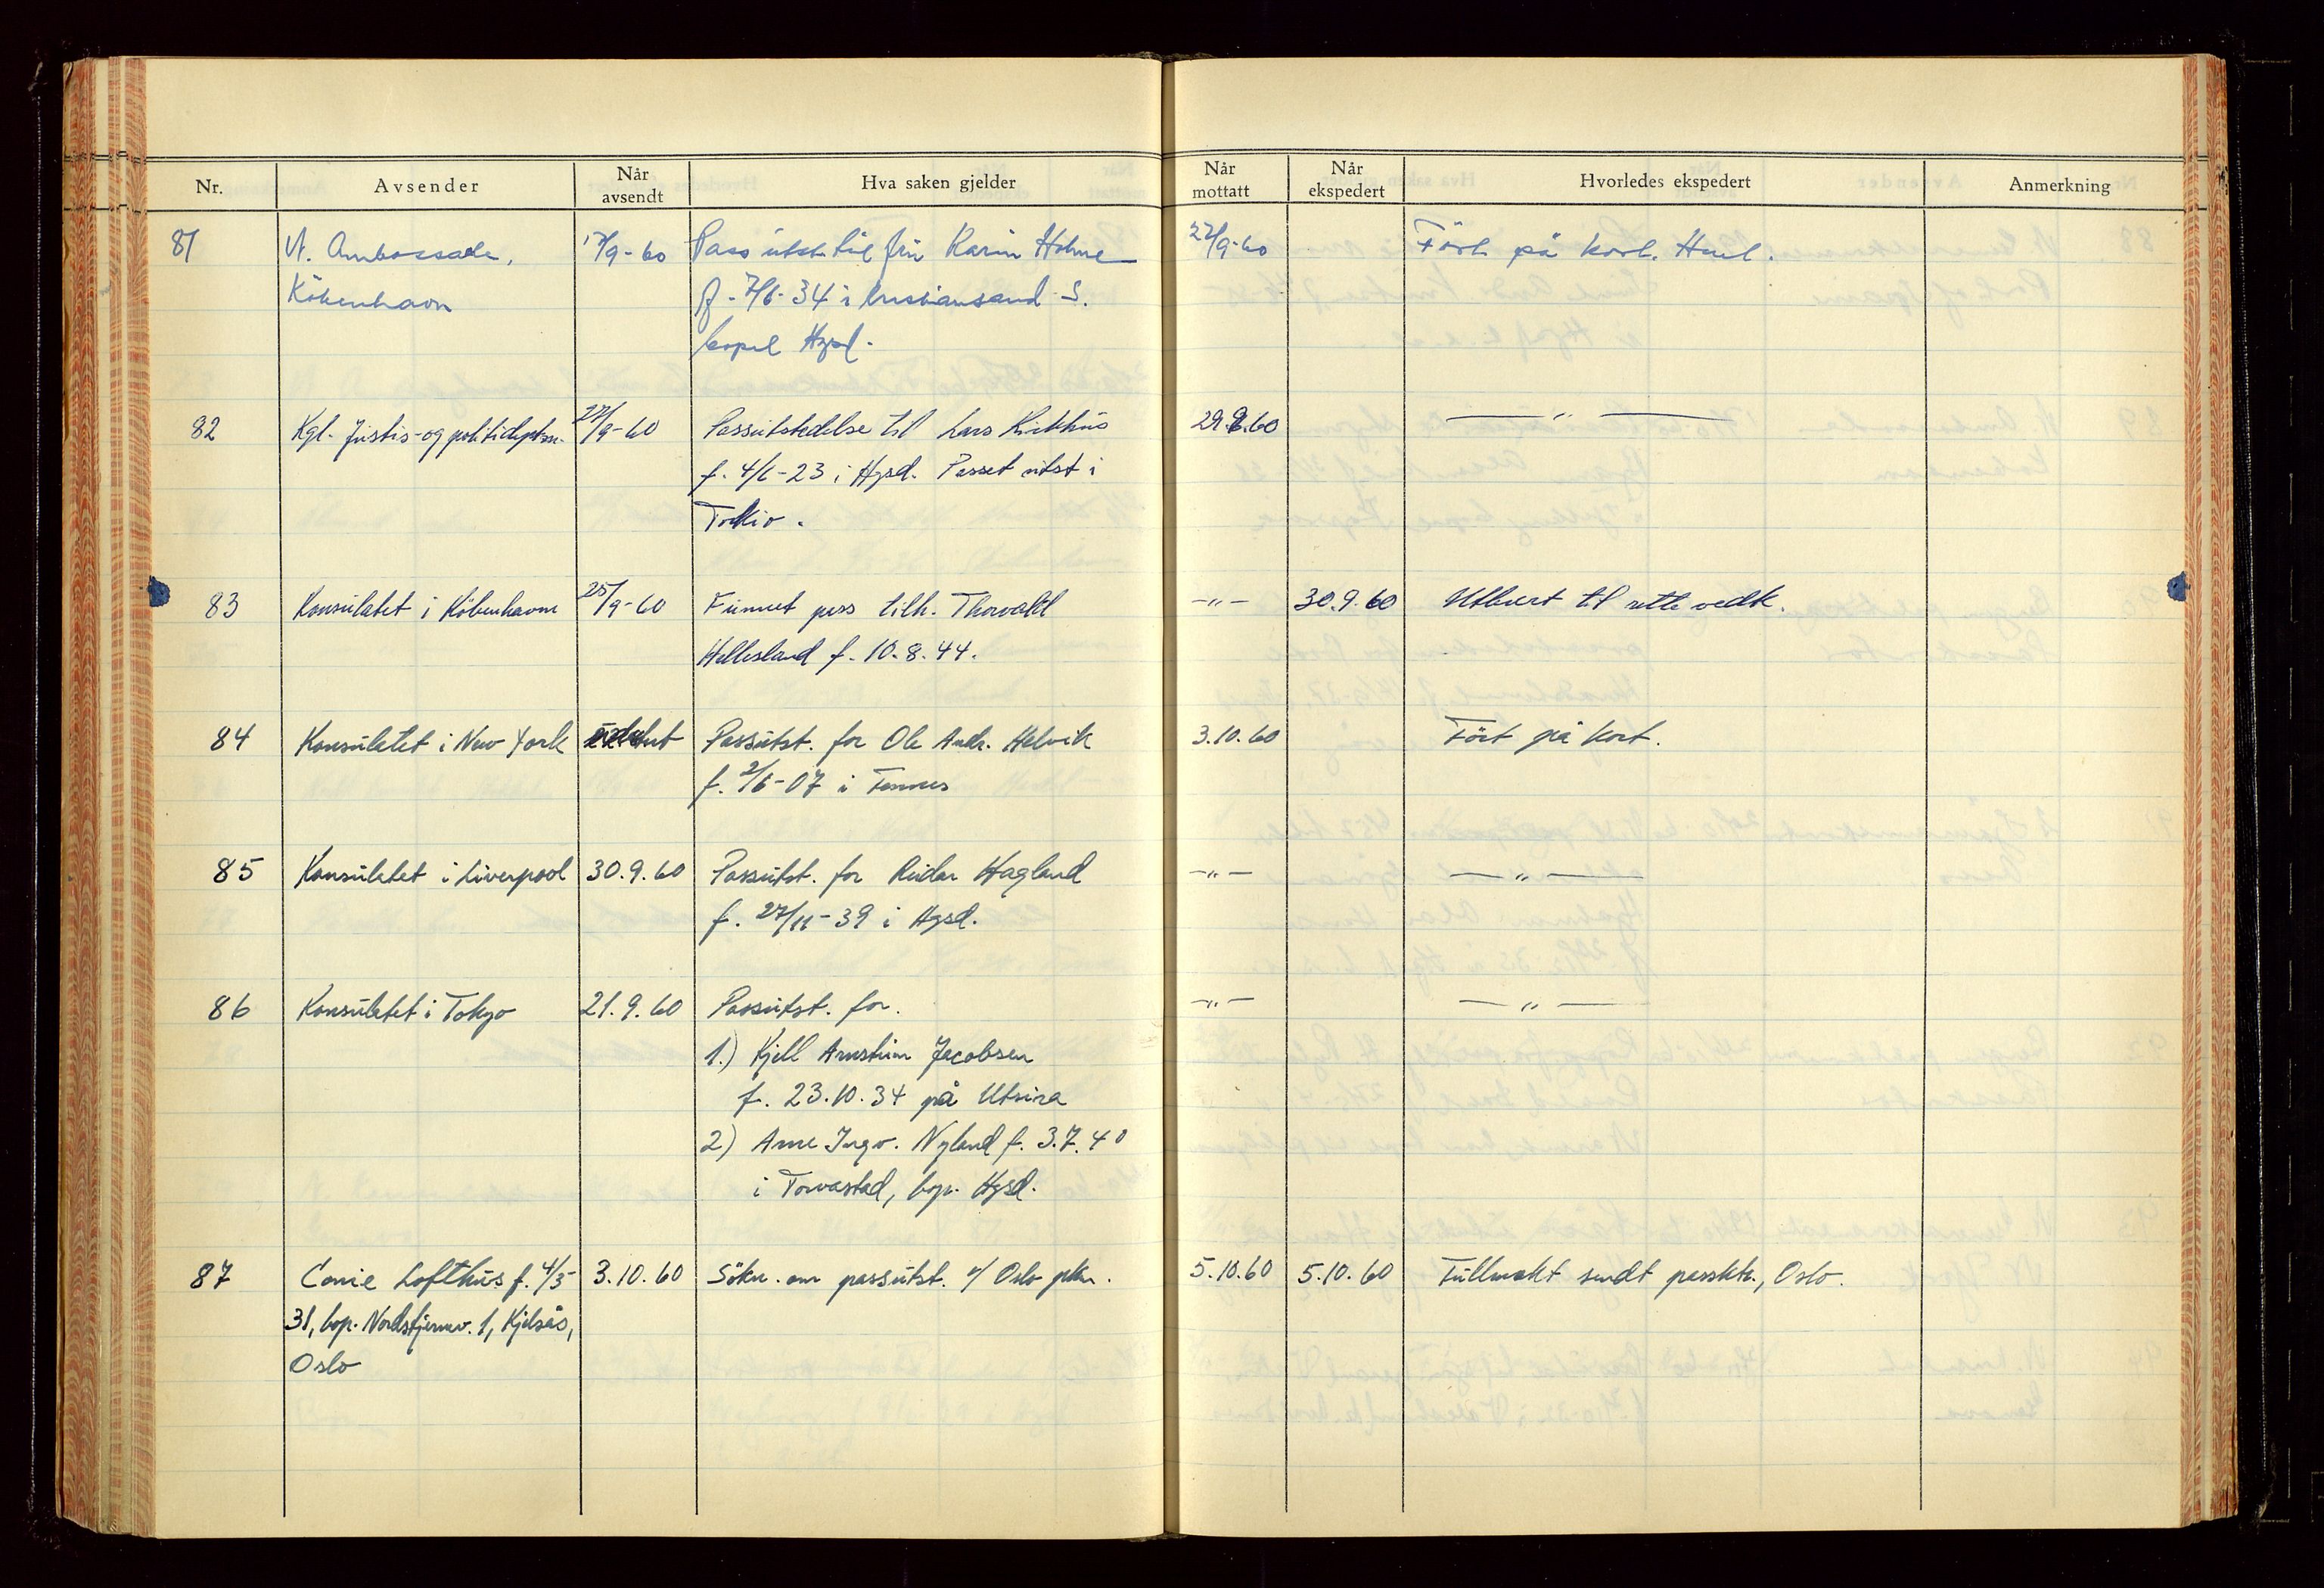 Nr.
Avsender
Når avsendt
Hva saken gjelder
Når mottatt
Når ekspedert
Hvorledes ekspedert
Anmerkning
81 N. Ambassade, 17/9-60 Pass utst. til fru Karin 27/9-60 Fört på kort.
København f. 7/6-34 i Kristiansand S.
bopel Hgsd.
82 Kgl. Justis- og politideptm. 27/9-60 Passutstedelse til Lars Kirkhus 29.9.60 — " —
f. 4/6-23 i Hgsd. Passet utst i
Tokio.
83 Konsulatet i København 25/9-60 Funnet pass tilh. Thorvald — " — 30.9.60 Utlevert til rette vedk.
Hellesland f. 10.8.44.
84 Konsulatet i New York udatert Passutst. for Ole Andr. Helvik 3.10.60 Fört på kort.
f. 2/6-07 i
85 Konsulatet i Liverpool 30.9.60 Passutst. for Reidar Hagland — " — — " —
f. 27/11-39 i Hgsd.
86 Konsulatet i Tokyo 21.9.60 Passutst. for. — " — — " —
1.) Kjell Arnstein Jacobsen
f. 23.10.34 på Utsira
2) Arne Ingv. Nyland f. 3.7.40
i Torvastad, bop. Hgsd.
87 Conie Lofthus f. 4/5- 3.10.60 Søkn. om passutst. v/ Oslo pkm. 5.10.60 5.10.60 Fullmakt sendt passktr., Oslo.
31, bop. Nordstjernev. 1, Kjelsås,
Oslo